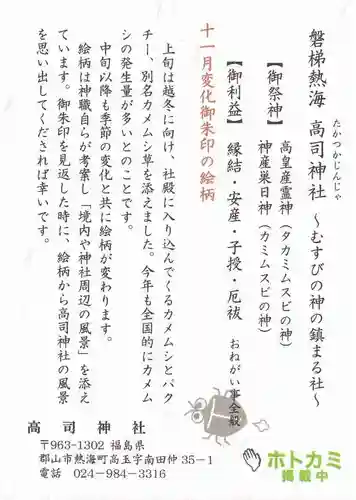 磐梯熱海 高司神社 ～むすびの神の鎮まる社～
たかつかじんじゃ
【御祭神】 高皇産霊神（タカミムスビの神）
神産巣日神（カミムスビの神）
【御利益】 縁結・安産・子授・厄祓 おねがい事全般
十一月変化御朱印の絵柄
上旬は越冬に向け、社殿に入り込んでくるカメムシとパク
チー、別名カメムシ草を添えました。今年も全国的にカメム
シの発生量が多いとのことです。
中旬以降も季節の変化と共に絵柄が変わります。
絵柄は神職自らが考案し「境内や神社周辺の風景」を添え
ています。御朱印を見返した時に、絵柄から高司神社の風景
を思い出してくだされば幸いです。
高司神社
〒963-1302 福島県
郡山市熱海町高玉字南田仲35－1
電話 024-984-3316
ホトカミ
掲載中